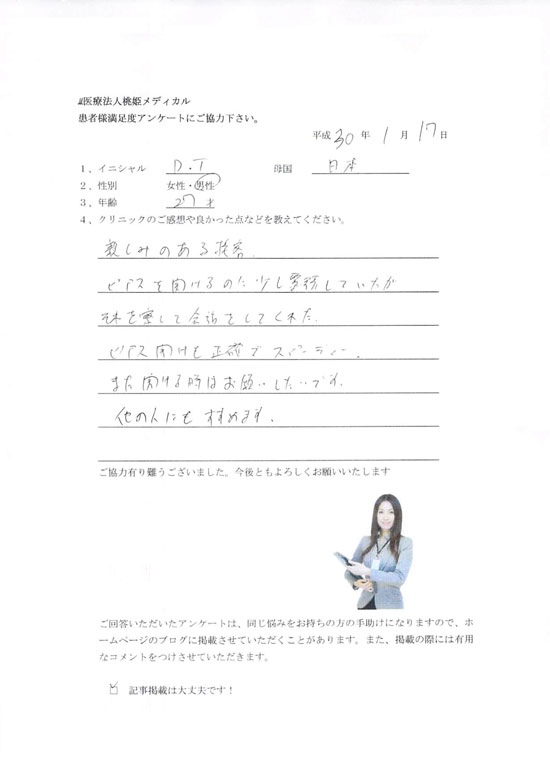 医療法人桃姫メディカル
患者様満足度アンケートにご協力下さい。
平成 30 年 1 月 17 日
1、イニシャル D.I 母国 日本
2、性別 女性・男性
3、年齢 27 才
4、クリニックのご感想や良かった点などを教えてください。
親しみのある接客。
ピアスを開けるのに少し緊張していたが
それを察して会話をしてくれた。
ピアス開けも正確でスピーディー。
また開ける時はお願いしたいです。
他の人にもすすめます。
ご協力有り難うございました。今後ともよろしくお願いいたします
ご回答いただいたアンケートは、同じ悩みをお持ちの方の手助けになりますので、ホ
ームページのブログに掲載させていただくことがあります。また、掲載の際には有用
なコメントをつけさせていただきます。
記事掲載は大丈夫です！